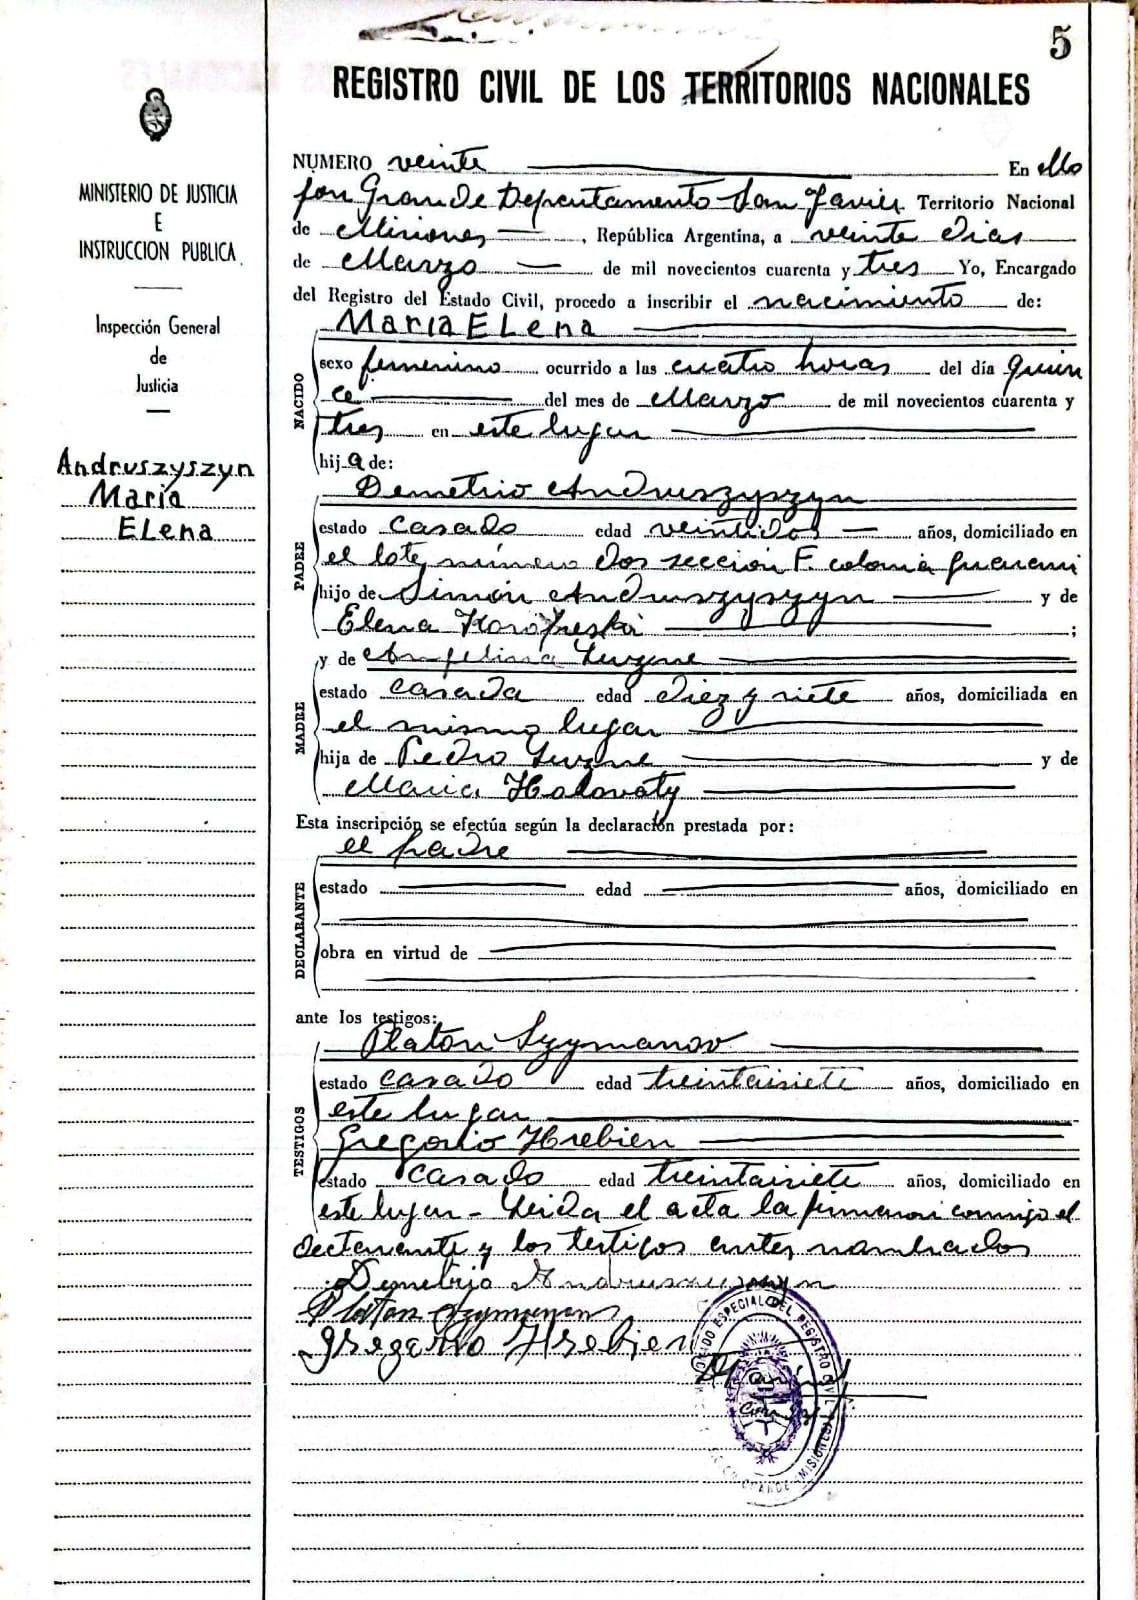 5
REGISTRO CIVIL DE LOS TERRITORIOS NACIONALES
MINISTERIO DE JUSTICIA
E
INSTRUCCION PUBLICA
Inspección General
de
Justicia
Andruszyszyn
María
Elena
NUMERO veinte En Mo
jon Grande Departamento San Javier Territorio Nacional
de Misiones, República Argentina, a veinte dias
de Marzo de mil novecientos cuarenta y tres Yo, Encargado
del Registro del Estado Civil, procedo a inscribir el nacimiento de:
María Elena
NACIDO
sexo femenino ocurrido a las cuatro horas del día quin
ce del mes de Marzo de mil novecientos cuarenta y
tres en este lugar
hija de:
Demetrio Andruszyszyn
PADRE
estado casado edad veintidos años, domiciliado en
el lote número dos sección F. colonia guarani
hijo de Simón Andruszyszyn y de
Elena ;
y de Angelina
MADRE
estado casada edad diez y siete años, domiciliada en
el mismo lugar
hija de Pedro y de
Maria Holovaty
Esta inscripción se efectúa según la declaración prestada por:
el padre
DECLARANTE
estado edad años, domiciliado en
obra en virtud de
ante los testigos:
Platon Szymanov
TESTIGOS
estado casado edad treintaisiete años, domiciliado en
este lugar
Gregorio Hrebien
estado casado edad treintaisiete años, domiciliado en
este lugar - Leida el acta la firmaron conmigo el
declarante y los testigos antes nombrados
Demetrio Andruszyszyn
Platon
Gregorio Hrebien
ESPECIAL DEL REGISTRO CIVIL
GRANDE (MISIONES)